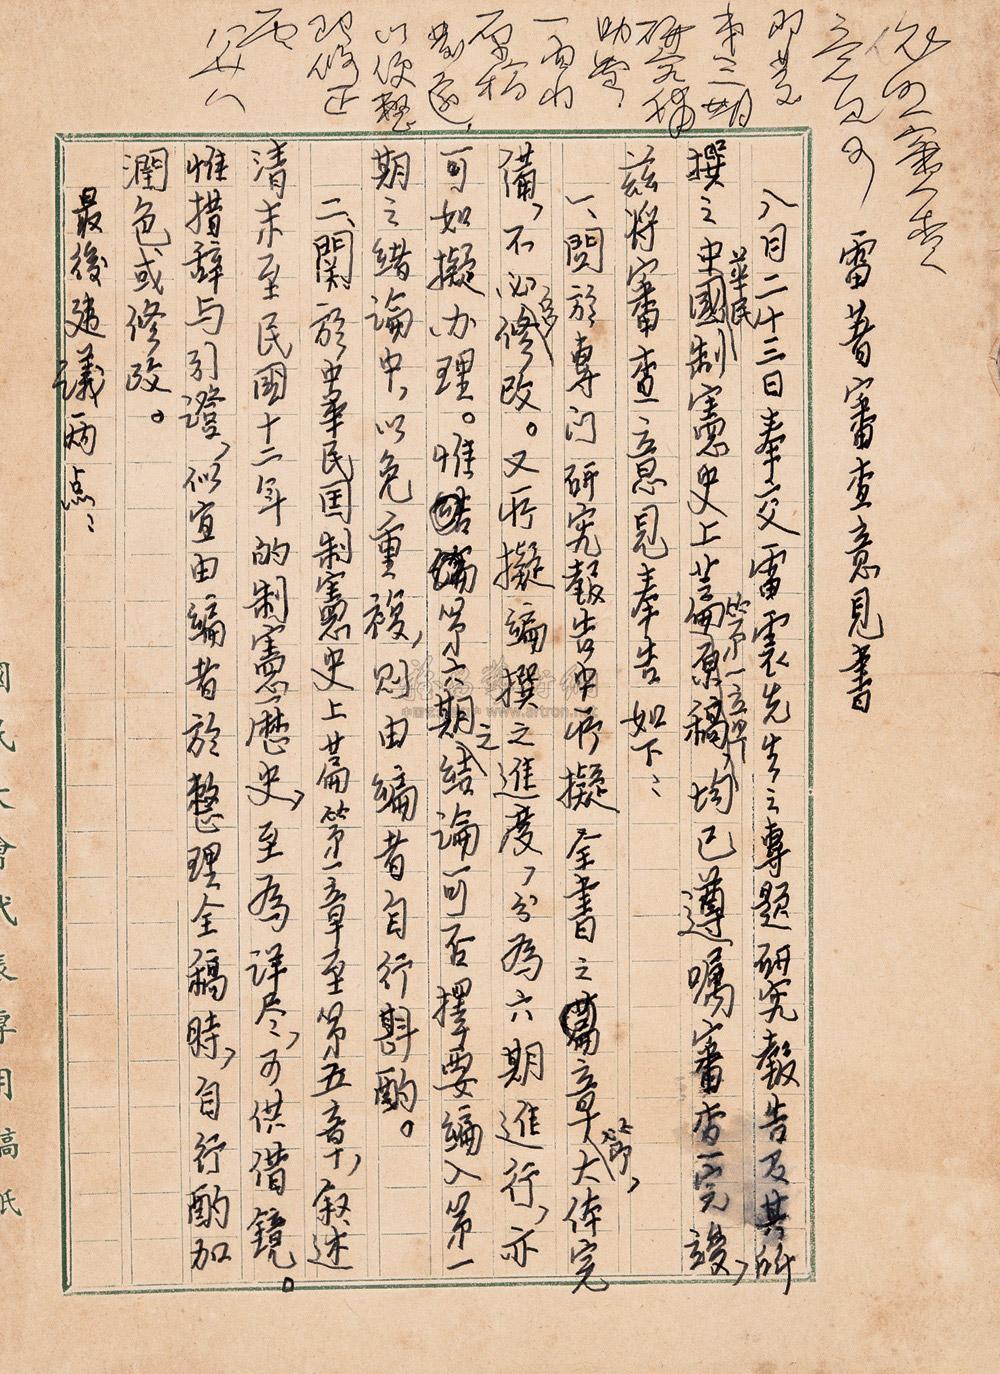 雷著審查意見書
八月二十三日奉交雷震先生之專題研究報告及其所
撰之中華民國制憲史上篇第一章原稿，均已遵囑審查完竣，
茲將審查意見奉告如下：
一、關於專門研究報告中所擬全書之篇章節，大体完
備，不必多修改。又所擬編撰之進度，分為六期進行，亦
可如擬办理。惟第六期之結論可否擇要編入第一
期之緒論中，以免重複，則由編者自行斟酌。
二、關於中華民国制憲史上篇第一章至第五章，叙述
清末至民國十二年的制憲歷史，至為详尽，可供借鏡。
惟措辞与引證，似宜由編者於整理全稿時，自行酌加
潤色或修改。
最後建議兩点：
依此審查
意見可
即發
第三期
研究補
助費，
一面將
原稿
發還，
以便整
理修正
八
國民大會代表專用稿紙